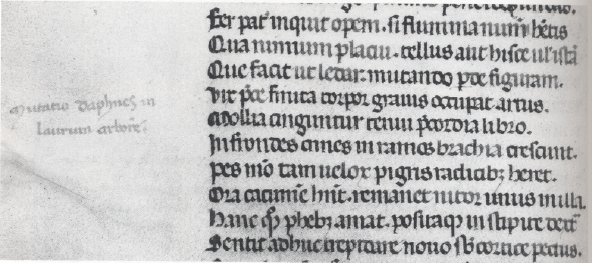 Fer pat' inquit opem. si flumina num̄ hētis
Qua nimium placui. tellus aut hisce ul' istā
Que facit ut ledar. mutando pde figuram.
Vix p̄ce finita corpor grauis occupat artus.
Mutatio daphnes in
laurum arborē.
Mollia cinguntur tenui p̄cordia libro.
In frondes crines in ramos brachia crescunt.
Pes mō tam uelox pigris radicib; heret.
Ora cacumīe hn̄t. remanet nitor unus in illa.
Hanc qꝫ pheb; amat. positaqꝫ in stipite dext'
Sentit adhuc trepidare nouo sb cortice pectus.